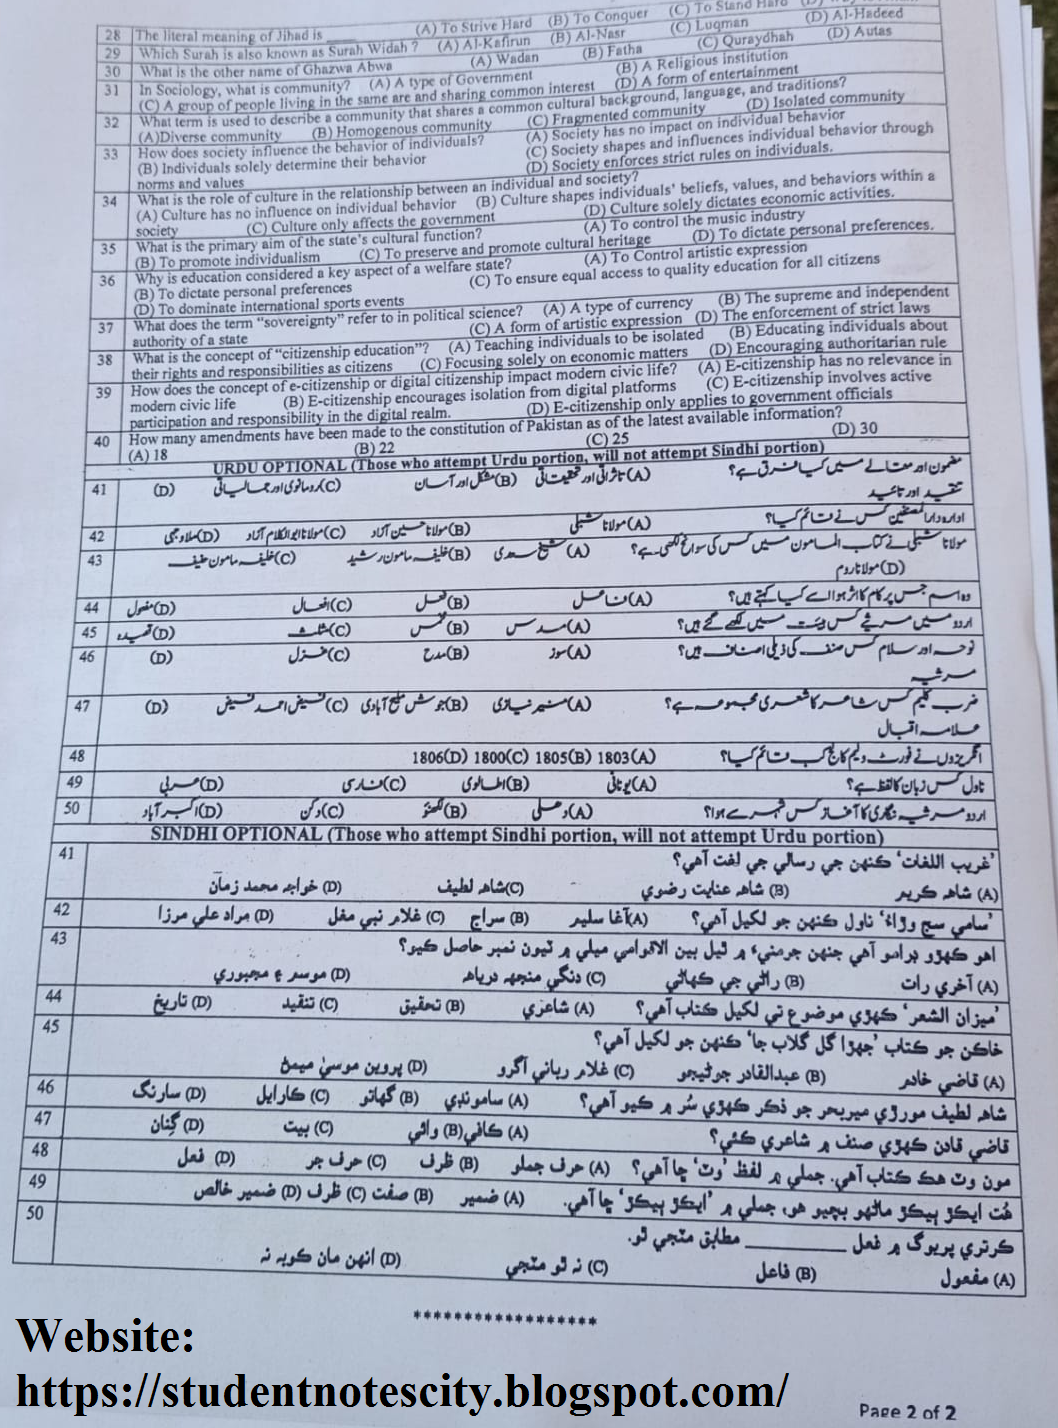 28 The literal meaning of Jihad is ____ (A) To Strive Hard (B) To Conquer (C) To Stand Hard (D)
29 Which Surah is also known as Surah Widah ? (A) Al-Kafirun (B) Al-Nasr (C) Luqman (D) Al-Hadeed
30 What is the other name of Ghazwa Abwa (A) Wadan (B) Fatha (C) Quraydhah (D) Autas
31 In Sociology, what is community? (A) A type of Government (B) A Religious institution
(C) A group of people living in the same are and sharing common interest (D) A form of entertainment
32 What term is used to describe a community that shares a common cultural background, language, and traditions?
(A)Diverse community (B) Homogenous community (C) Fragmented community (D) Isolated community
33 How does society influence the behavior of individuals? (A) Society has no impact on individual behavior
(B) Individuals solely determine their behavior (C) Society shapes and influences individual behavior through
norms and values (D) Society enforces strict rules on individuals.
34 What is the role of culture in the relationship between an individual and society?
(A) Culture has no influence on individual behavior (B) Culture shapes individuals' beliefs, values, and behaviors within a
society (C) Culture only affects the government (D) Culture solely dictates economic activities.
35 What is the primary aim of the state's cultural function? (A) To control the music industry
(B) To promote individualism (C) To preserve and promote cultural heritage (D) To dictate personal preferences.
36 Why is education considered a key aspect of a welfare state? (A) To Control artistic expression
(B) To dictate personal preferences (C) To ensure equal access to quality education for all citizens
(D) To dominate international sports events
37 What does the term "sovereignty" refer to in political science? (A) A type of currency (B) The supreme and independent
authority of a state (C) A form of artistic expression (D) The enforcement of strict laws
38 What is the concept of "citizenship education"? (A) Teaching individuals to be isolated (B) Educating individuals about
their rights and responsibilities as citizens (C) Focusing solely on economic matters (D) Encouraging authoritarian rule
39 How does the concept of e-citizenship or digital citizenship impact modern civic life? (A) E-citizenship has no relevance in
modern civic life (B) E-citizenship encourages isolation from digital platforms (C) E-citizenship involves active
participation and responsibility in the digital realm. (D) E-citizenship only applies to government officials
40 How many amendments have been made to the constitution of Pakistan as of the latest available information?
(A) 18 (B) 22 (C) 25 (D) 30
URDU OPTIONAL (Those who attempt Urdu portion, will not attempt Sindhi portion)
41 مضمون اور مقالے میں کیا فرق ہے؟ (A) تاثراتی اور تحقیقاتی (B) مشکل اور آسان (C) رومانوی اور جمالیاتی (D)
تنقید اور تائید
42 ادارہ دارالمصنفین کس نے قائم کیا؟ (A) مولانا شبلی (B) مولانا حسین آزاد (C) مولانا ابوالکلام آزاد (D) ملا وجہی
43 مولانا شبلی نے کتاب المامون میں کس کی سوانح لکھی ہے؟ (A) شیخ سعدی (B) خلیفہ مامون رشید (C) خلیفہ مامون حنیف
(D) مولانا روم
44 وہ اسم جس پر کام کا اثر ہو اسے کیا کہتے ہیں؟ (A) فاعل (B) فعل (C) افعال (D) مفعول
45 اردو میں مرثیے کس ہیئت میں لکھے گئے ہیں؟ (A) مسدس (B) مخمس (C) مثلث (D) قصیدہ
46 نوحہ اور سلام کس صنف کی ذیلی اصناف ہیں؟ (A) سوز (B) مدح (C) غزل (D)
مرثیہ
47 ضرب کلیم کس شاعر کا شعری مجموعہ ہے؟ (A) منیر نیازی (B) جوش ملیح آبادی (C) فیض احمد فیض (D)
علامہ اقبال
48 انگریزوں نے فورٹ ولیم کالج کب قائم کیا؟ 1803(A) 1805(B) 1800(C) 1806(D)
49 ناول کس زبان کا لفظ ہے؟ (A) یونانی (B) اطالوی (C) فارسی (D) عربی
50 اردو مرثیہ نگاری کا آغاز کس شہر سے ہوا؟ (A) دہلی (B) لکھنؤ (C) دکن (D) اکبر آباد
SINDHI OPTIONAL (Those who attempt Sindhi portion, will not attempt Urdu portion)
41 'غريب اللغات' ڪنهن جي رسالي جي لغت آهي؟
(A) شاهه ڪريم (B) شاهه عنايت رضوي (C) شاهه لطيف (D) خواجه محمد زمان
42 'سامي سج وڙاءُ' ناول ڪنهن جو لکيل آهي؟ (A) آغا سليم (B) سراج (C) غلام نبي مغل (D) مراد علي مرزا
43 اهو ڪهڙو ڊرامو آهي جنهن جرمنيءَ ۾ ٿيل بين الاقوامي ميلي ۾ ٽيون نمبر حاصل ڪيو؟
(A) آخري رات (B) راڻي جي ڪهاڻي (C) دنگي منجهه درياهه (D) موسر ۽ مجبوري
44 'ميزان الشعر' ڪهڙي موضوع تي لکيل ڪتاب آهي؟ (A) شاعري (B) تحقيق (C) تنقيد (D) تاريخ
45 خاڪن جو ڪتاب 'جهڙا گل گلاب جا' ڪنهن جو لکيل آهي؟
(A) قاضي خادم (B) عبدالقادر جوڻيجو (C) غلام رباني آگرو (D) پروين موسيٰ ميمڻ
46 شاهه لطيف مورڙي ميربحر جو ذڪر ڪهڙي سُر ۾ ڪيو آهي؟ (A) سامونڊي (B) گهاتو (C) ڪارايل (D) سارنگ
47 قاضي قادن ڪهڙي صنف ۾ شاعري ڪئي؟ (A) ڪافي (B) وائي (C) بيت (D) گِنان
48 مون وٽ هڪ ڪتاب آهي. جملي ۾ لفظ 'وٽ' ڇا آهي؟ (A) حرف جملو (B) ظرف (C) حرف جر (D) فعل
49 هُت ايڪڙ ٻيڪڙ ماڻهو بچيو هو، جملي ۾ 'ايڪڙ ٻيڪڙ' ڇا آهي. (A) ضمير (B) صفت (C) ظرف (D) ضمير خالص
50 ڪرتري پريوگ ۾ فعل ________ مطابق مٽجي ٿو.
(A) مفعول (B) فاعل (C) نه ٿو مٽجي (D) انهن مان ڪوبه نه
******************
Website:
https://studentnotescity.blogspot.com/
Page 2 of 2